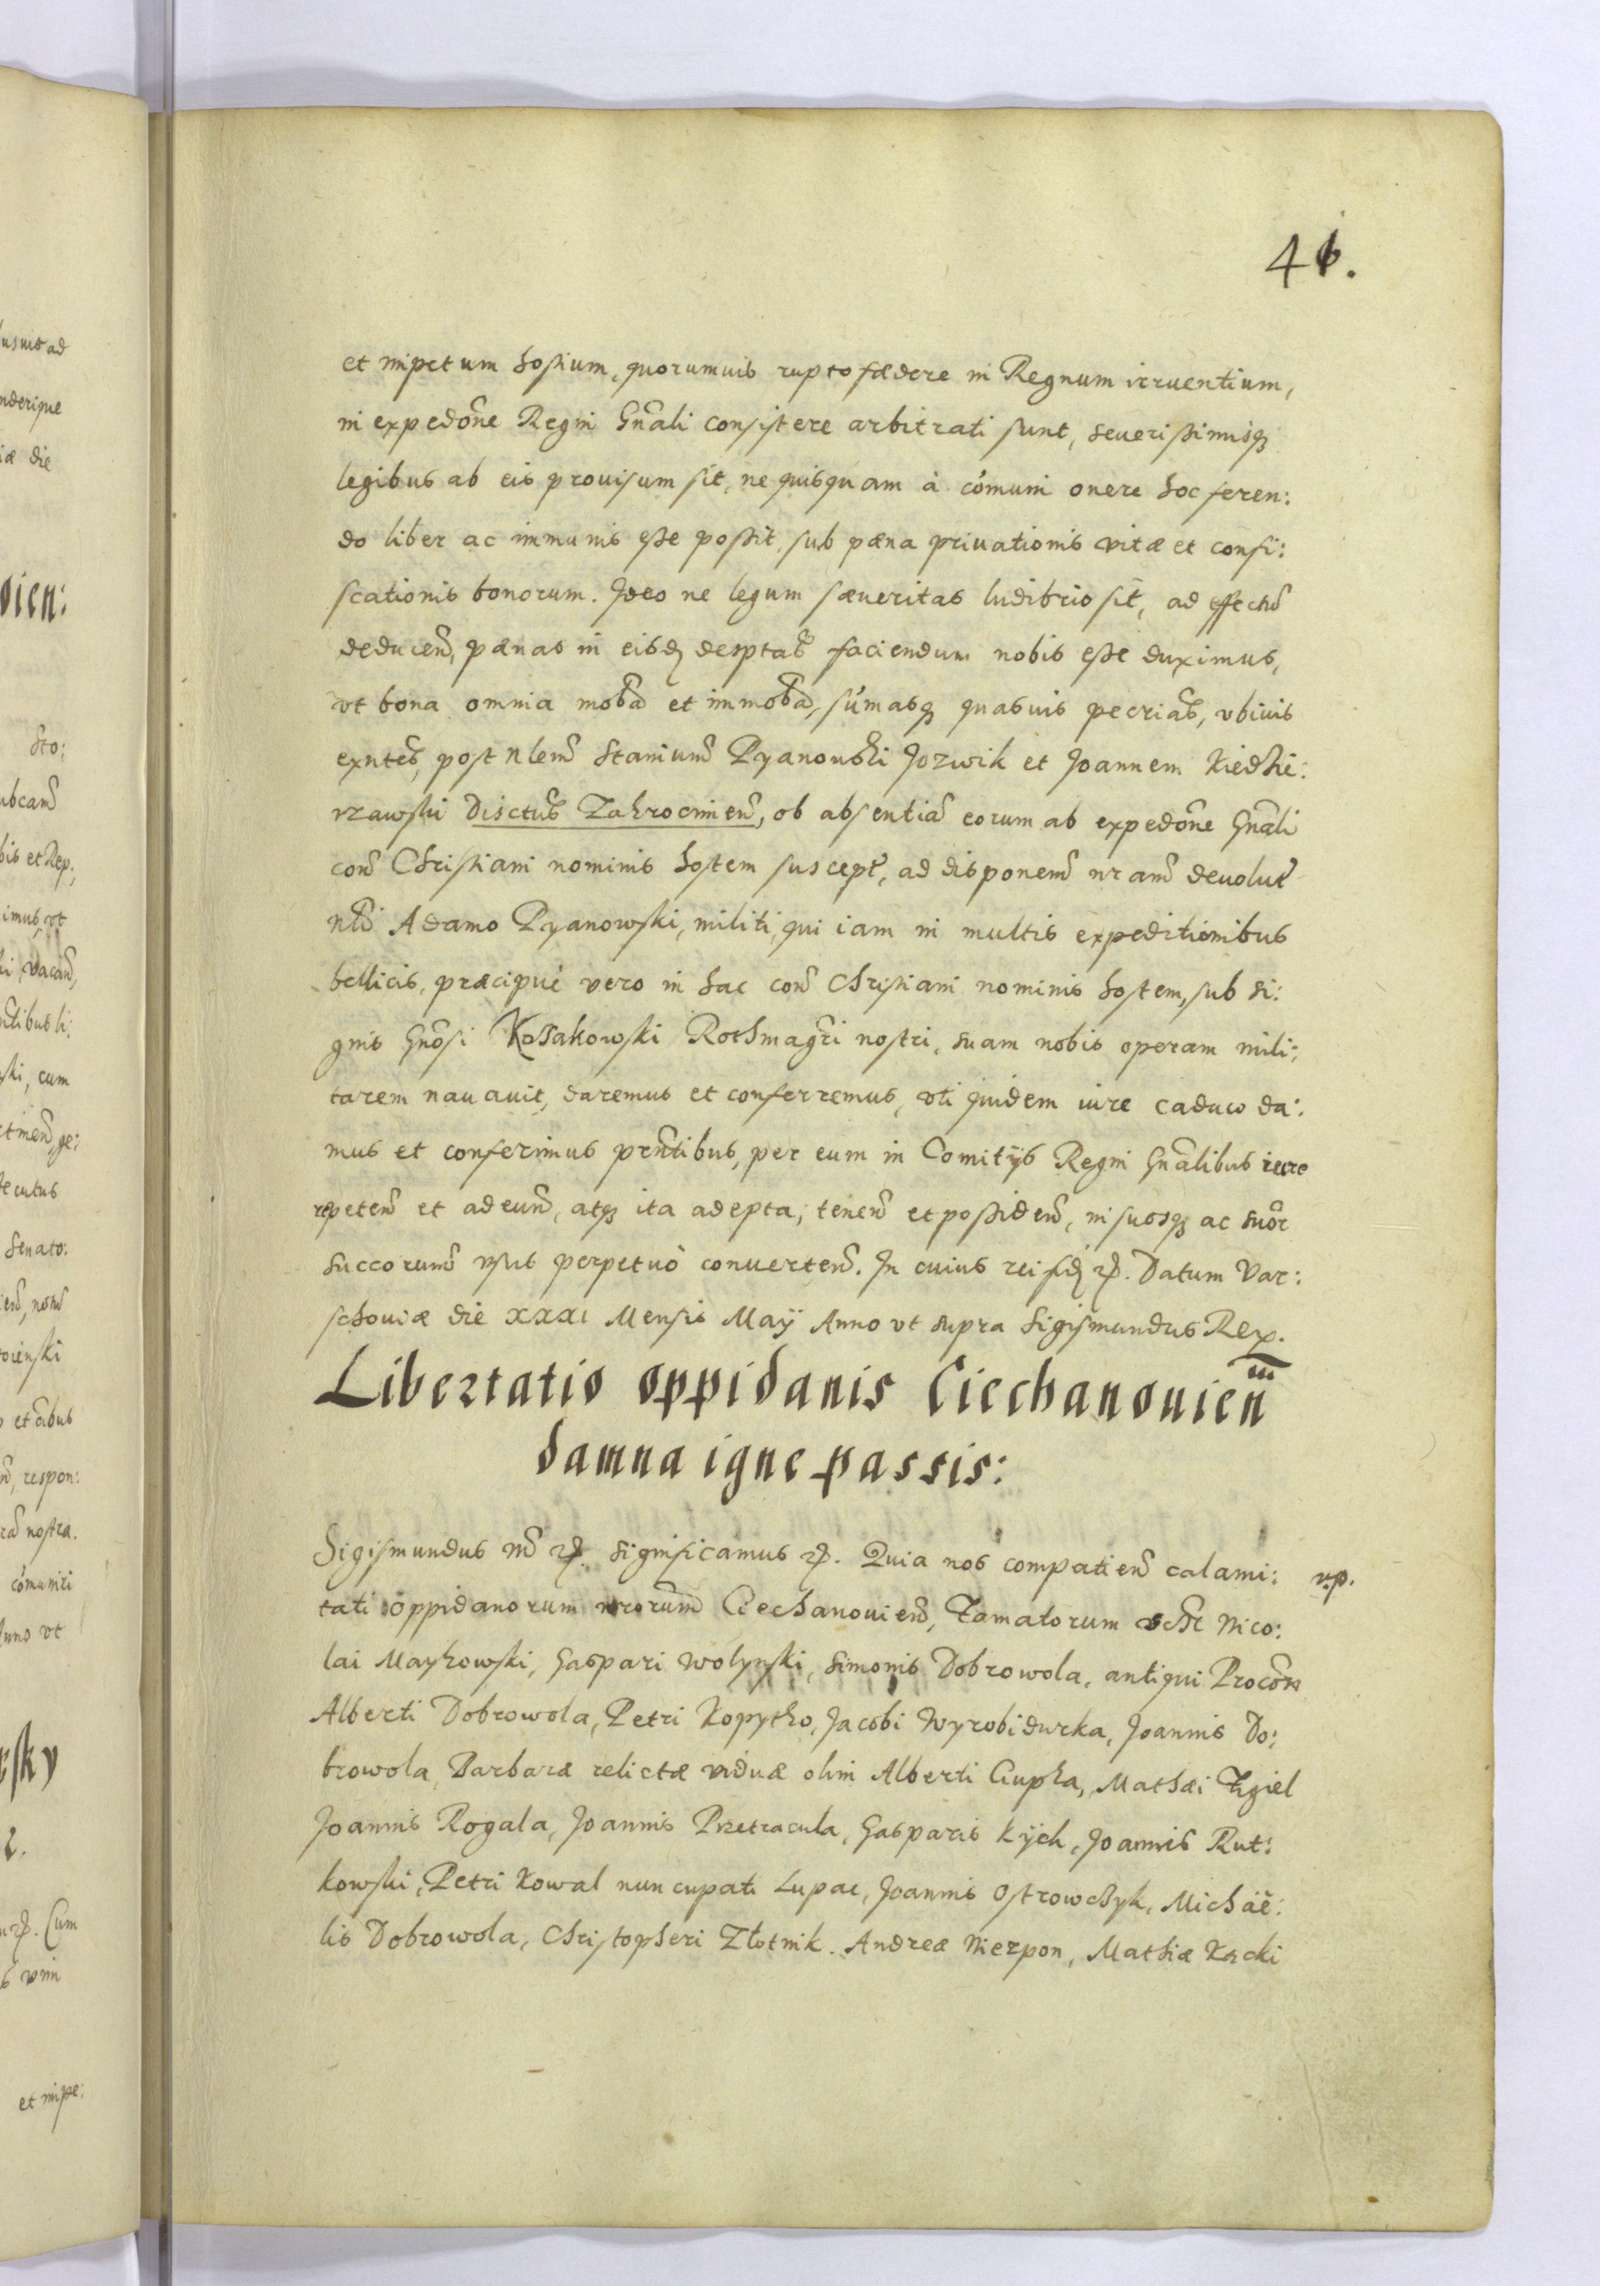 46.
et impetum hostium, quorumuis rupto fædere in Regnum irruentium,
in expedõne Regni Gñali consistere arbitrati sunt, seuerissimisq3
legibus ab eis prouisum sit, ne quisquam à cómuni onere hoc feren:
do liber ac immunis esse possit, sub pæna priuationis vitæ et confi:
scationis bonorum. Ideo ne legum sæueritas ludibrio sit, ad effectũ
deducen̄, pænas in eisd desptas faciendum nobis esse duximus,
vt bona omnia mobã et immobã, súmasq3 quasuis pecrias, vbiuis
exntes, post Nlem̃ Staniũm Pyanowski Jozwik et Joannem Kiedzie:
rzawski Disctus Zakrocimien̄, ob absentiã eorum ab expedõne Gñali
con̄ Christiani nominis hostem suscept, ad disponem̃ nram̃ deuolut
Adamo Pyanowski, militi, qui iam in multis expeditionibus
bellicis, præcipuè vero in hac con̄ Christiani nominis hostem, sub si:
gnis Gnõsi Kossakowski Rothmagri nostri, suam nobis operam mili:
tarem nauauit, daremus et conferremus, vti quidem iure caduco da:
mus et conferimus prñtibus, per eum in Comitijs Regni Gñalibus iure
repeten̄ et adeun̄, atq3 ita adepta, tenen̄ et possiden̄, in suosq3 ac suor
succorum̃ vsus perpetuò conuerten̄. In cuius rei fid etc. Datum Var:
schouiæ die XXXI Mensis Maÿ Anno vt supra Sigismundus Rex.
Libertatio oppidanis Ciechanouien̄
damna igne passis:
Sigismundus etc. significamus etc. Quia nos compatien̄ calami:
tati oppidanorum nrorum̃ Ciechanouien̄, Famatorum Nico:
lai Maykowski, Gaspari Wolynski, Simonis Dobrowola, antiqui Procons
Alberti Dobrowola, Petri Kopytko, Jacobi Wyrobidurka, Joannis Do:
browola, Barbaræ relictæ viduæ olim Alberti Ciupka, Mathæi Figiel
Joannis Rogala, Joannis Przetracula, Gasparis Kÿch, Joannis Rut:
kowski, Petri Kowal nuncupati Lupac, Joannis Ostrowchyk, Michaë:
lis Dobrowola, Christopheri Złotnik. Andreæ Nierpon, Mathiæ Kącki